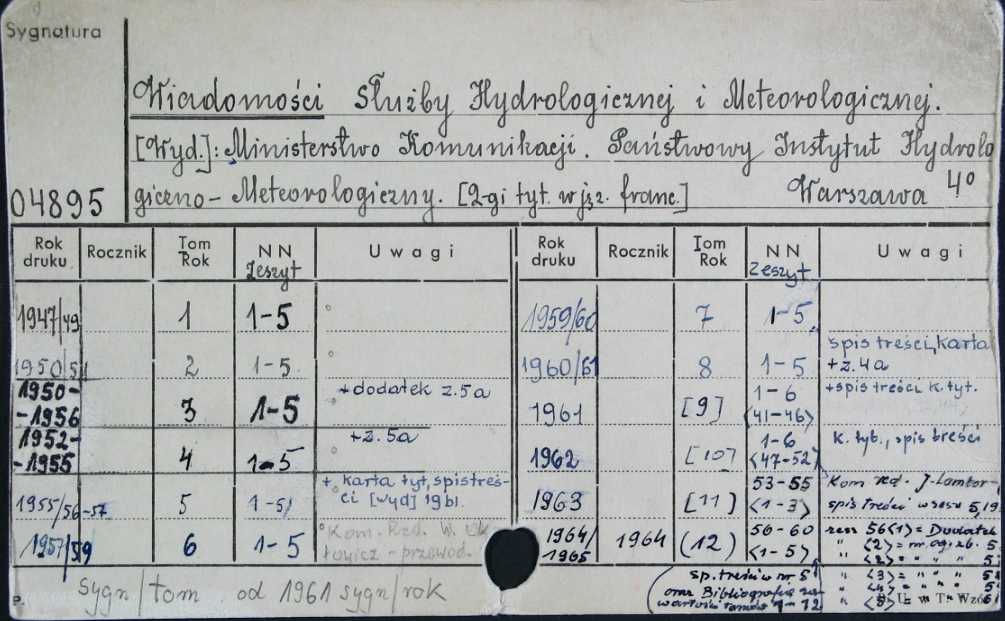 Sygnatura
Wiadomości Służby Hydrologicznej i Meteorologicznej.
[Wyd.]: Ministerstwo Komunikacji. Państwowy Instytut Hydrolo
giczno-Meteorologiczny. [2-gi tyt. w jęz. franc.] Warszawa 4°
04895
Rok druku Rocznik Tom Rok NN Zeszyt Uwagi Rok druku Rocznik Tom Rok NN Zeszyt Uwagi
1947/49 1 1-5 1959/60 7 1-5
1950/51 2 1-5 1960/61 8 1-5 spis treści, karta
+z. 4a
1950-
-1956 3 1-5 +dodatek z. 5a 1961 [9] 1-6
<41-46> +spis treści k. tyt.
1952-
-1955 4 1-5 +z. 5a 1962 [10] 1-6
<47-52> k. tyt., spis treści
1955/56-57 5 1-5 + karta tyt, spis treś-
ci [wyd] 1961. 1963 [11] 53-55
<1-3> Kom red. J.
spis treści w zesz 5,19
1957/59 6 1-5 Kom. Red. W.
- przewod. 1964/
1965 1964 (12) 56-60
<1-5> zesz 56<1> = Dodatek
" <2> = 5
" <2> = " " " 5
sygn/tom od 1961 sygn/rok
sp. treści w nr. 5
oraz Bibliografia za-
wartości tomów 1-12
" <3> = " " " 5
P.